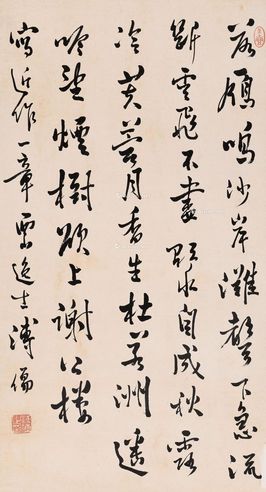 落雁鳴沙岸灘聲下急流
斷雲飛不盡野水自成秋露
冷芙蓉月香生杜若洲遠
吟望煙樹欲上謝公樓
寫近作一章西山逸士溥儒